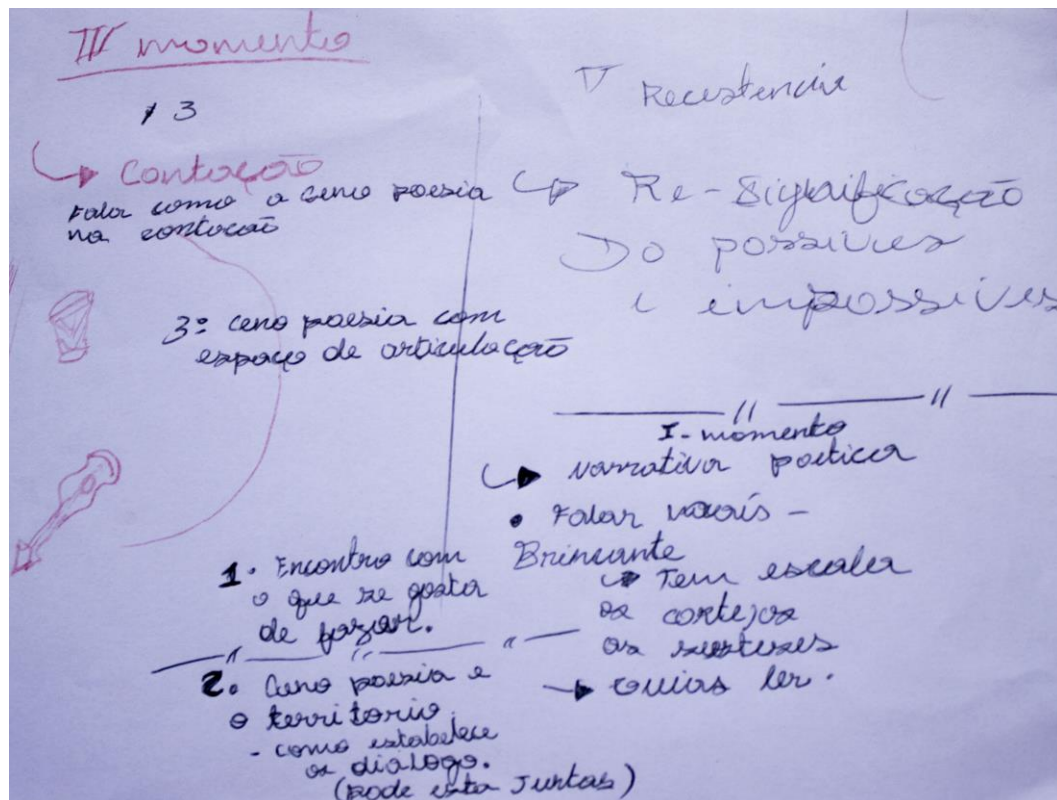 IV momento
3
Contação
Falar como a ceno poesia
na contocão
3º ceno poesia com
espaço de articulação
1. Encontro com
o que se gosta
de fazer.
2. Ceno poesia e
o territorio
- como estabelece
os dialogo.
(pode esta Juntas)
V Recestencia
Re-Significação
Do possives
i impossives
I-momento
narrativa poetica
• Falar
Brincante
Tem escaler
os cortejos
os
ler.